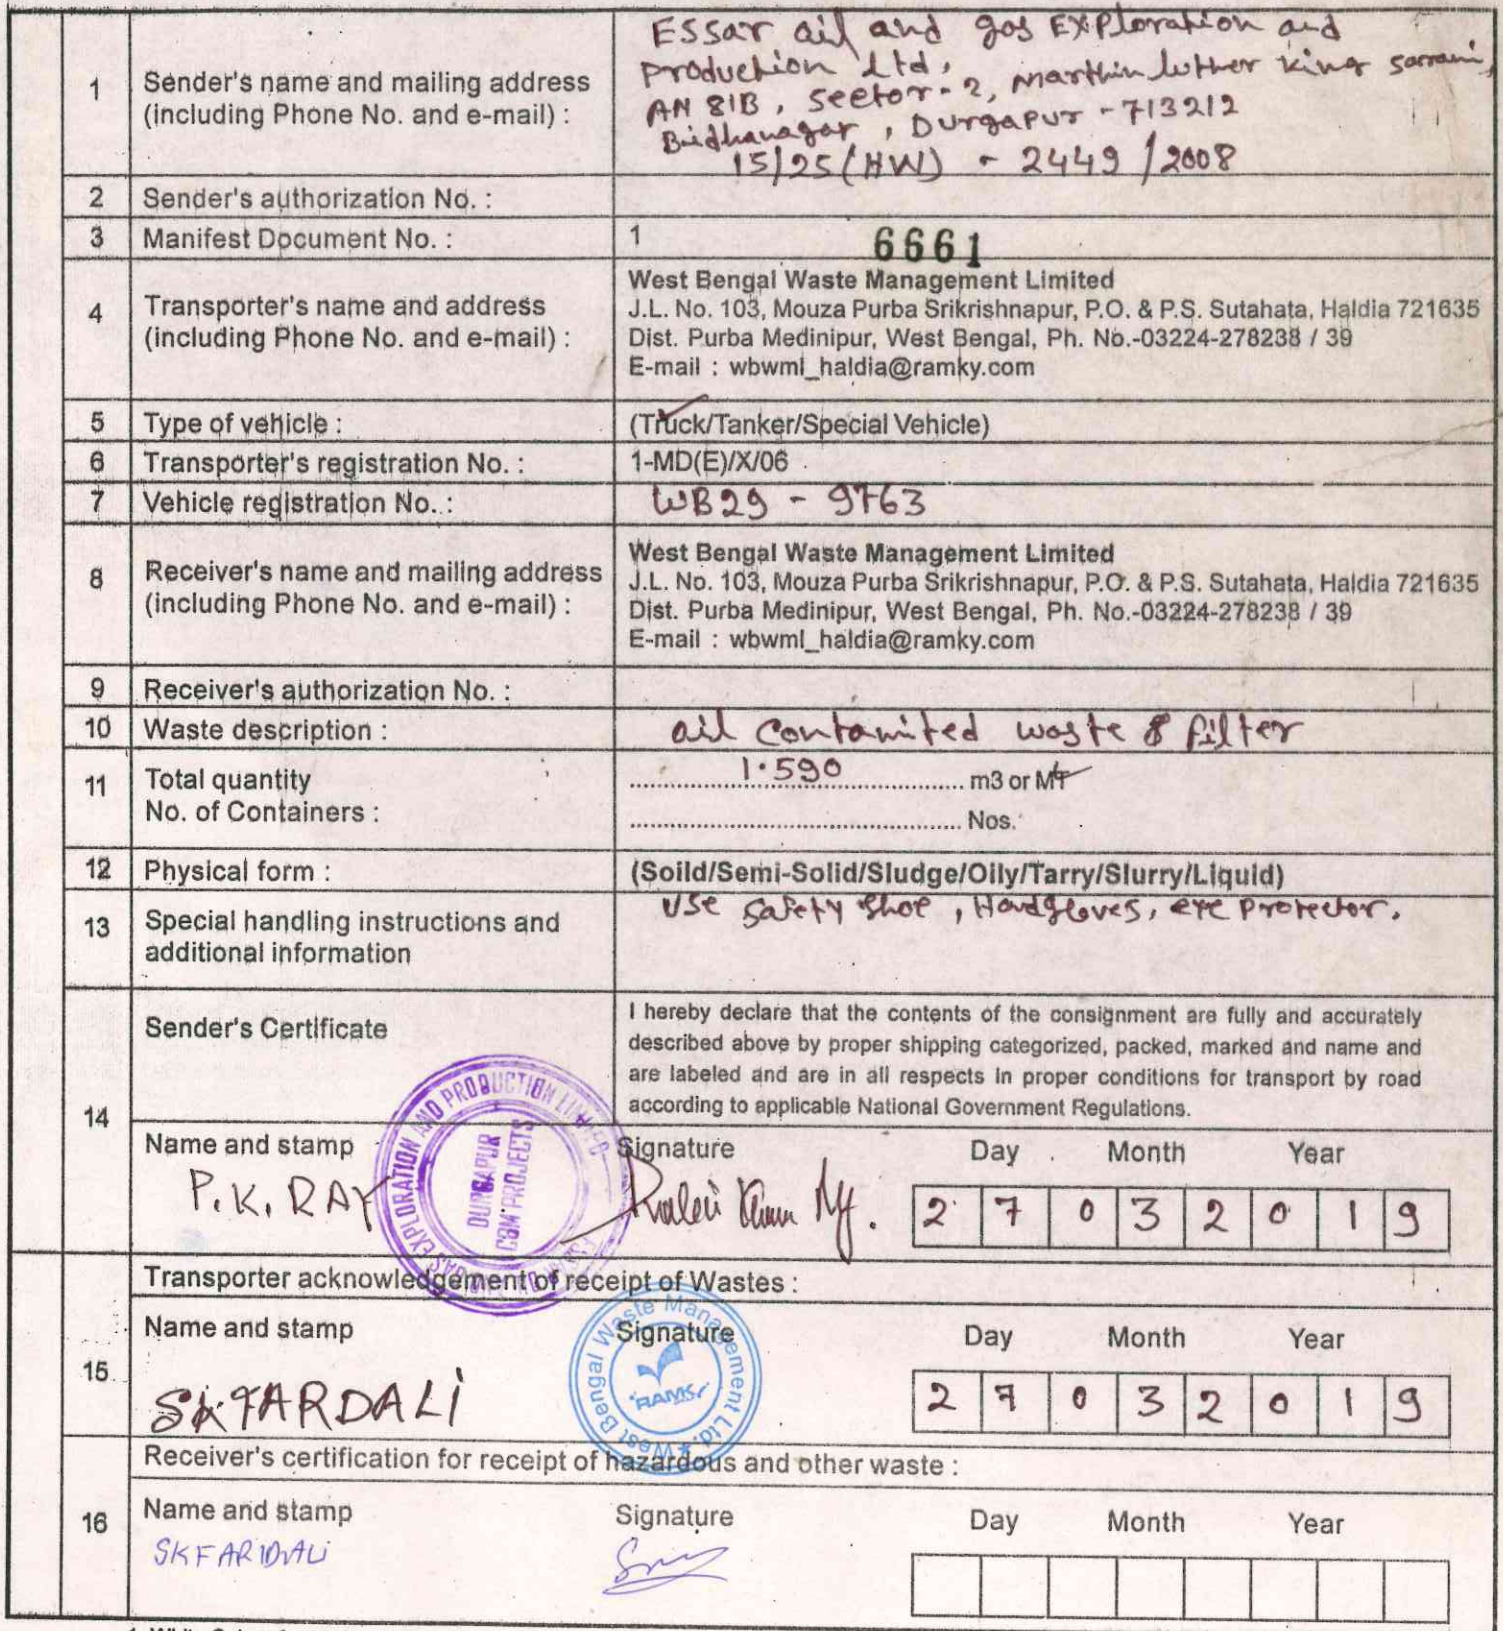 1
Sender's name and mailing address
(including Phone No. and e-mail) :
ESSar oil and gas EXPloration and
Production Ltd,
AN 81B, Sector-2, Marthin luther king sarani,
Bidhanagar, Durgapur - 713212
15/25(HW) - 2449/2008
2 Sender's authorization No. :
3 Manifest Document No. : 1 6661
4
Transporter's name and address
(including Phone No. and e-mail) :
West Bengal Waste Management Limited
J.L. No. 103, Mouza Purba Srikrishnapur, P.O. & P.S. Sutahata, Haldia 721635
Dist. Purba Medinipur, West Bengal, Ph. No.-03224-278238 / 39
E-mail : wbwml_haldia@ramky.com
5 Type of vehicle : (Truck/Tanker/Special Vehicle)
6 Transporter's registration No. : 1-MD(E)/X/06
7 Vehicle registration No. : WB29 - 9763
8
Receiver's name and mailing address
(including Phone No. and e-mail) :
West Bengal Waste Management Limited
J.L. No. 103, Mouza Purba Srikrishnapur, P.O. & P.S. Sutahata, Haldia 721635
Dist. Purba Medinipur, West Bengal, Ph. No.-03224-278238 / 39
E-mail : wbwml_haldia@ramky.com
9 Receiver's authorization No. :
10 Waste description : oil contamited waste & filter
11 Total quantity 1.590 m3 or MT
No. of Containers : Nos.
12 Physical form : (Soild/Semi-Solid/Sludge/Oily/Tarry/Slurry/Liquid)
13
Special handling instructions and
additional information
Use Safety Shoe, Handgloves, eye Protector.
14
Sender's Certificate
I hereby declare that the contents of the consignment are fully and accurately
described above by proper shipping categorized, packed, marked and name and
are labeled and are in all respects in proper conditions for transport by road
according to applicable National Government Regulations.
Name and stamp Signature Day Month Year
P.K. RAY 2 7 0 3 2 0 1 9
GAS EXPLORATION AND PRODUCTION LIMITED
DURGAPUR
CBM PROJECTS
15
Transporter acknowledgement of receipt of Wastes :
Name and stamp Signature Day Month Year
SK FARDALI 2 7 0 3 2 0 1 9
West Bengal Waste Management Ltd.
RAMKY
16
Receiver's certification for receipt of hazardous and other waste :
Name and stamp Signature Day Month Year
SK FARIDALI